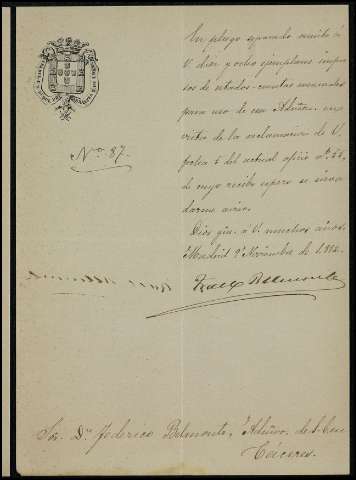 En pliego separado remito á
V. diez y ocho ejemplares impre
sos de estados-cuentas mensuales
para uso de esa Admón. en
vista de la reclamacion de V.
fecha 5 del actual oficio nº
de cuyo recibo espero se sirva
darme aviso.
Dios gue. á V. muchos años.
Madrid 9 Noviembre de
Nº 87.
Belmonte
Sor. Dn. Federico Belmonte, Admor. de
Cáceres.